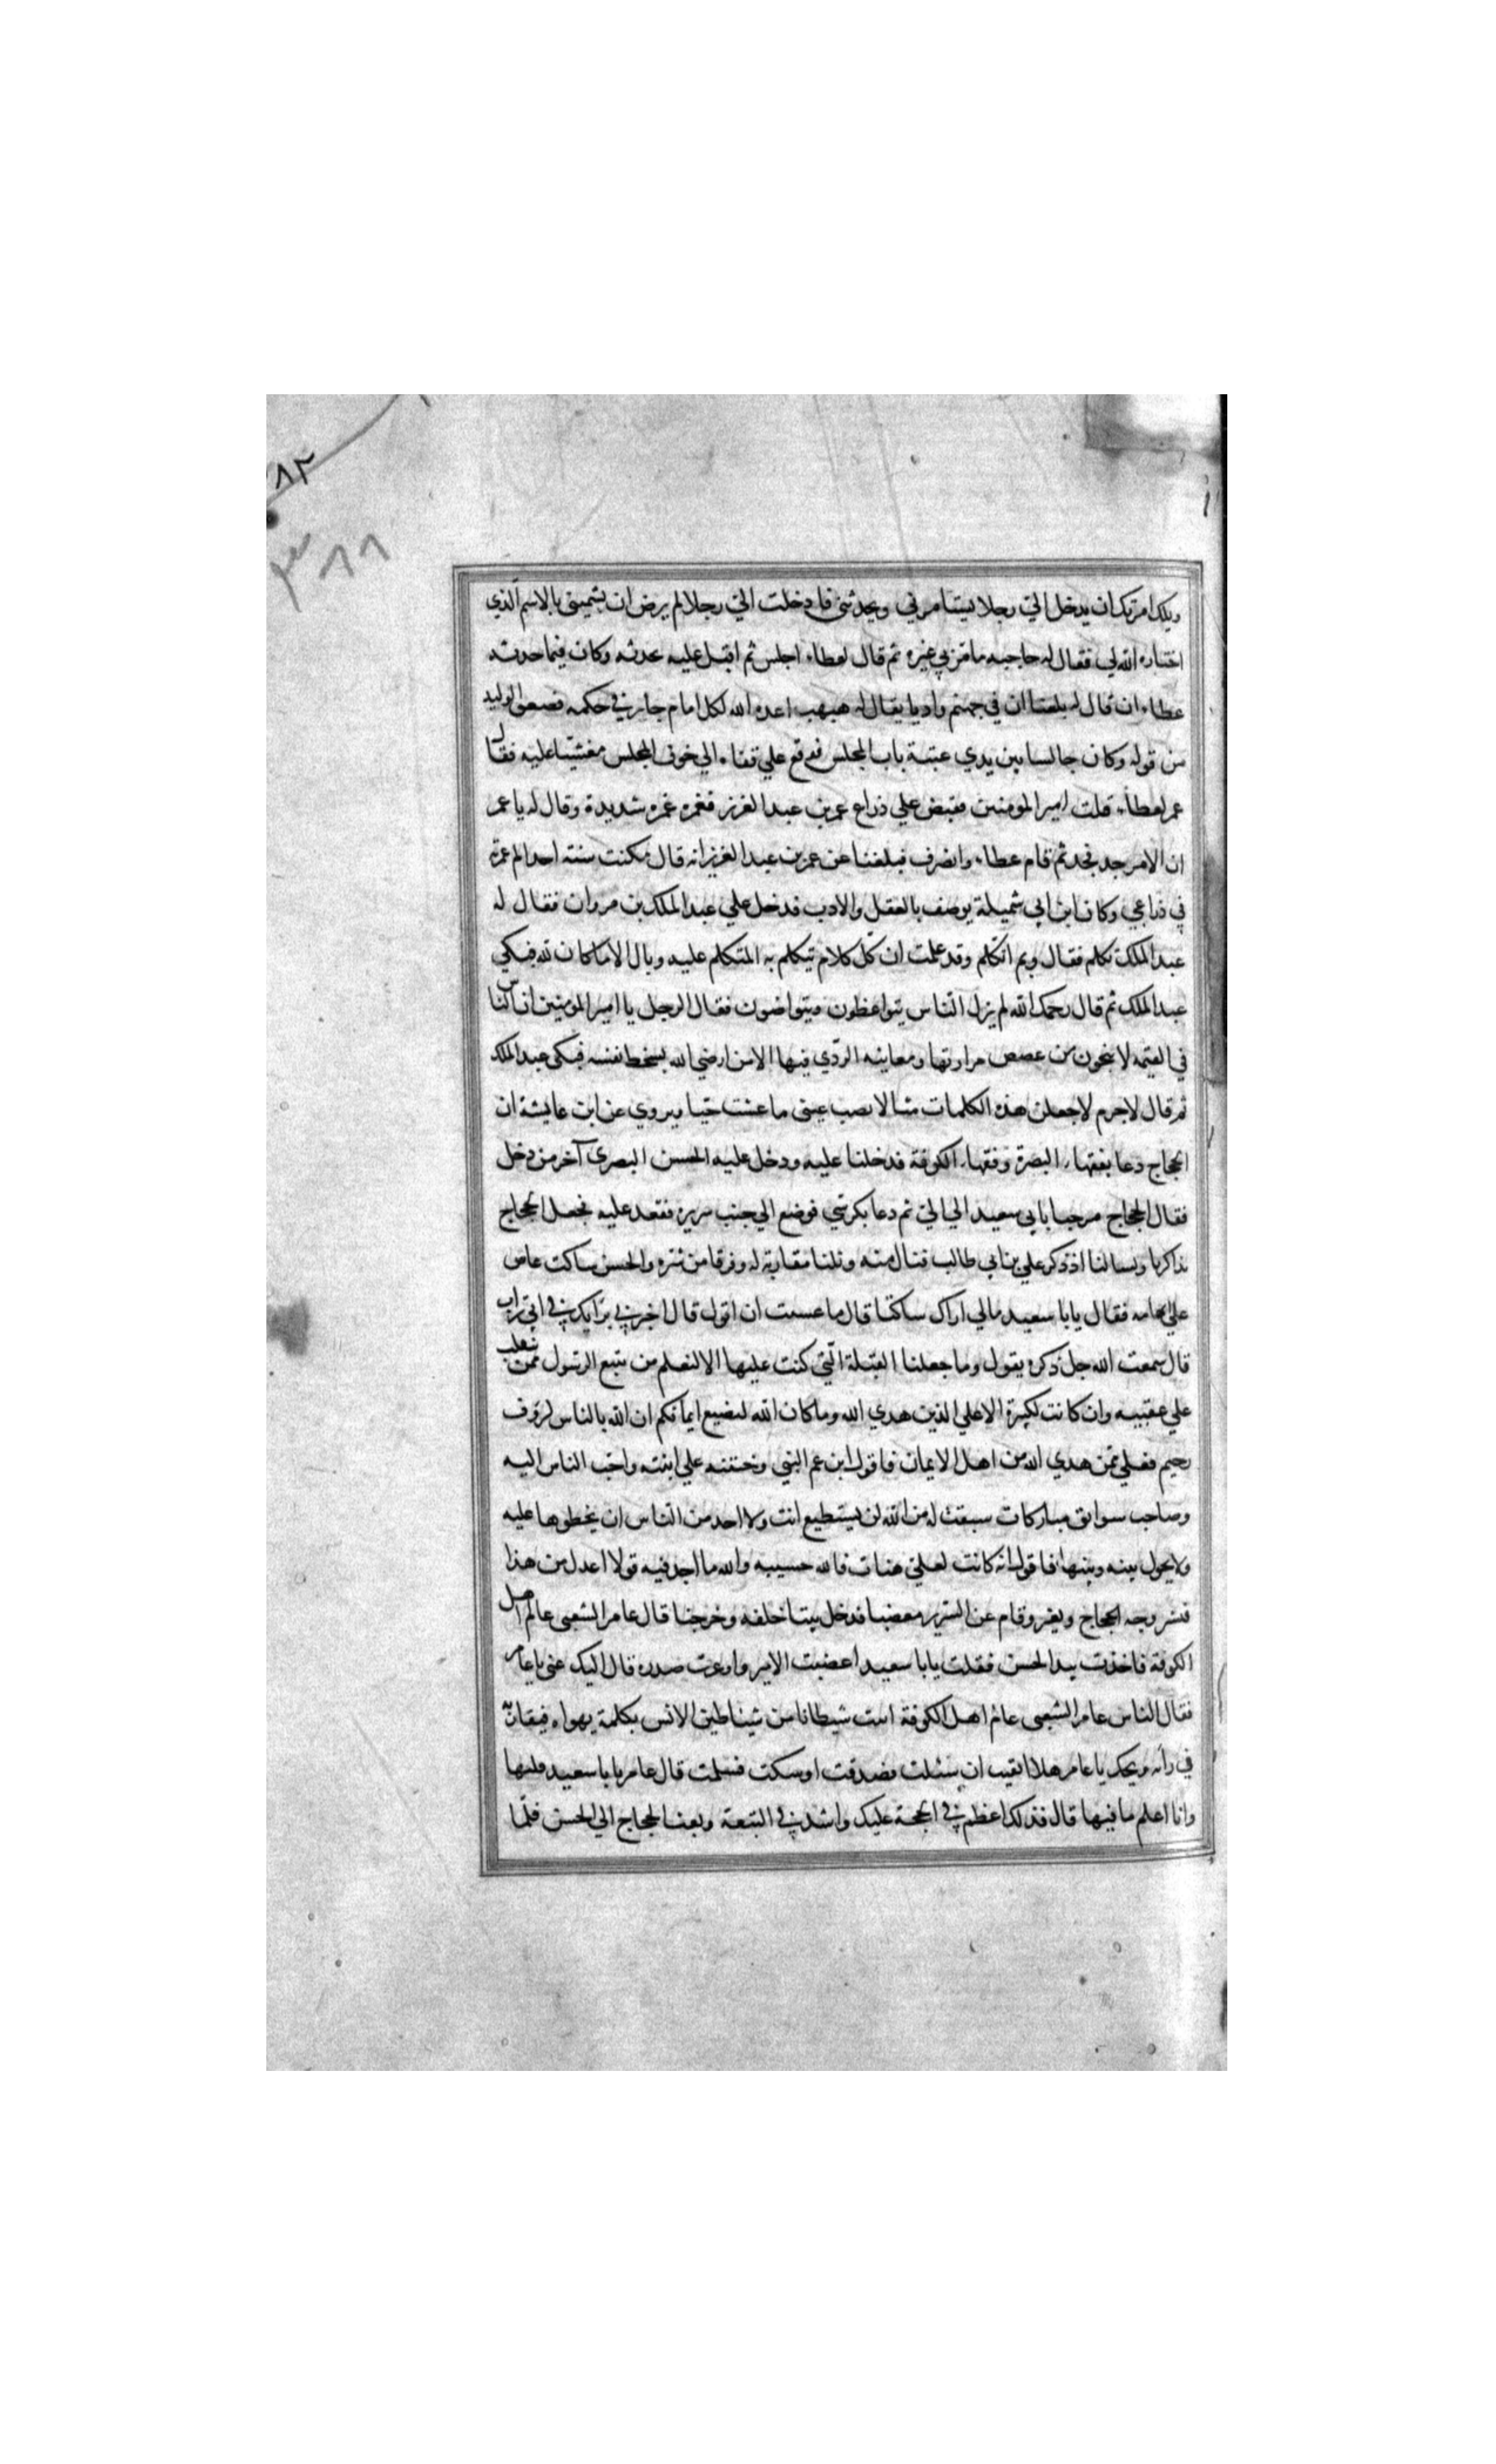 ٨٢
٨٦
ويلك امرتك ان يدخل اليّ رجلا يسامرني ويحدثني فادخلت اليّ رجلا لم يرض ان يسميني بالاسم الّذي
اختاره الله لي فقال له حاجبه ما مرّ بي غيره ثم قال لعطاء اجلس ثم اقبل عليه يحدثه وكان فيما حدثه
عطاء ان قال له بلغنا ان في جهنم واديا يقال له هبهب اعده الله لكل امام جاير في حكمه فصعق الوليد
من قوله وكان جالسا بين يدي عتبة باب المجلس فوقع علي قفاه الي جوف المجلس مغشيّا عليه فقال
عمر لعطاء قتلت امير المومنين فقبض علي ذراع عمر بن عبد العزيز فغمزه غمزه شديدة وقال له يا عمر
ان الامر جد فجد ثم قام عطاء وانصرف فبلغنا عن عمر بن عبد العزيز انه قال مكثت سنة اجد الم غمزة
في ذراعي وكان ابن ابي شميلة يوصف بالعقل والادب فدخل علي عبد الملك بن مروان فقال له
عبد الملك تكلم فقال وبم اتكلم وقد علمت ان كلّ كلام تيكلم به المتكلم عليه وبال الا ما كان لله فبكي
عبد الملك ثم قال رحمك الله لم يزل النّاس يتواعظون ويتواصون فقال الرجل يا امير المومنين ان الناس
في القيمة لا ينجون من غصص مرارتها ومعاينه الردّي فيها الا من ارضي الله بسخط نفسه فبكي عبد الملك
ثم قال لا جرم لاجعلن هذه الكلمات مثالا نصب عيني ما عشت حيّا ويروي عن ابن عايشة ان
الحجاج دعا بفقهاء البصرة وفقهاء الكوفة فدخلنا عليه ودخل عليه الحسن البصري آخر من دخل
فقال الحجاج مرحبا بابي سعيد الي الي ثم دعا بكرسي فوضع الي جنب سريره فقعد عليه فجعل الحجاج
يذاكرنا ويسالنا اذ ذكر علي بن ابي طالب فنال منه ونلنا مقاربة له وفرقا من شره والحسن ساكت عاض
علي ابهامه فقال يا با سعيد مالي اراك ساكتا قال ما عسيت ان اقول قال اخبرني برايك في ابي تراب
قال سمعت الله جل ذكره يقول وما جعلنا القبلة الّتي كنت عليها الا لنعلم من يتبع الرسول ممن ينقلب
علي عقبيه وان كانت لكبيرة الا علي الذين هدي الله وما كان الله ليضيع ايمانكم ان الله بالناس لرؤف
رحيم فعلي ممن هدي الله من اهل الايمان فاقول ابن عم النبي وختنه علي ابنته واحب الناس اليه
وصاحب سوابق مباركات سبقت له من الله لن يستطيع انت ولا احد من النّاس ان يخطوها عليه
ولا يحول بينه وبينها فاقول انه كانت لعلي هنات فالله حسيبه والله ما اجد فيه قولا اعدل من هذا
فبسر وجه الحجاج وتغير وقام عن السّرير مغضبا فدخل بيتا خلفه وخرجنا قال عامر الشعبي عالم اهل
الكوفة فاخذت بيد الحسن فقلت يا با سعيد اغضبت الامير واوغرت صدره قال اليك عني يا عامر
فقال الناس عامر الشعبي عالم اهل الكوفة اتيت شيطانا من شياطين الانس بكلمة يهواه فيقاربه
في رأيه ويحك يا عامر هلا اتقيت ان سئلت فصدقت او سكت فسلمت قال عامر يا با سعيد قلتها
وانا اعلم ما فيها قال فذلك اعظم في الحجة عليك واشد في التبعة وبعث الحجاج الي الحسن فلمّا